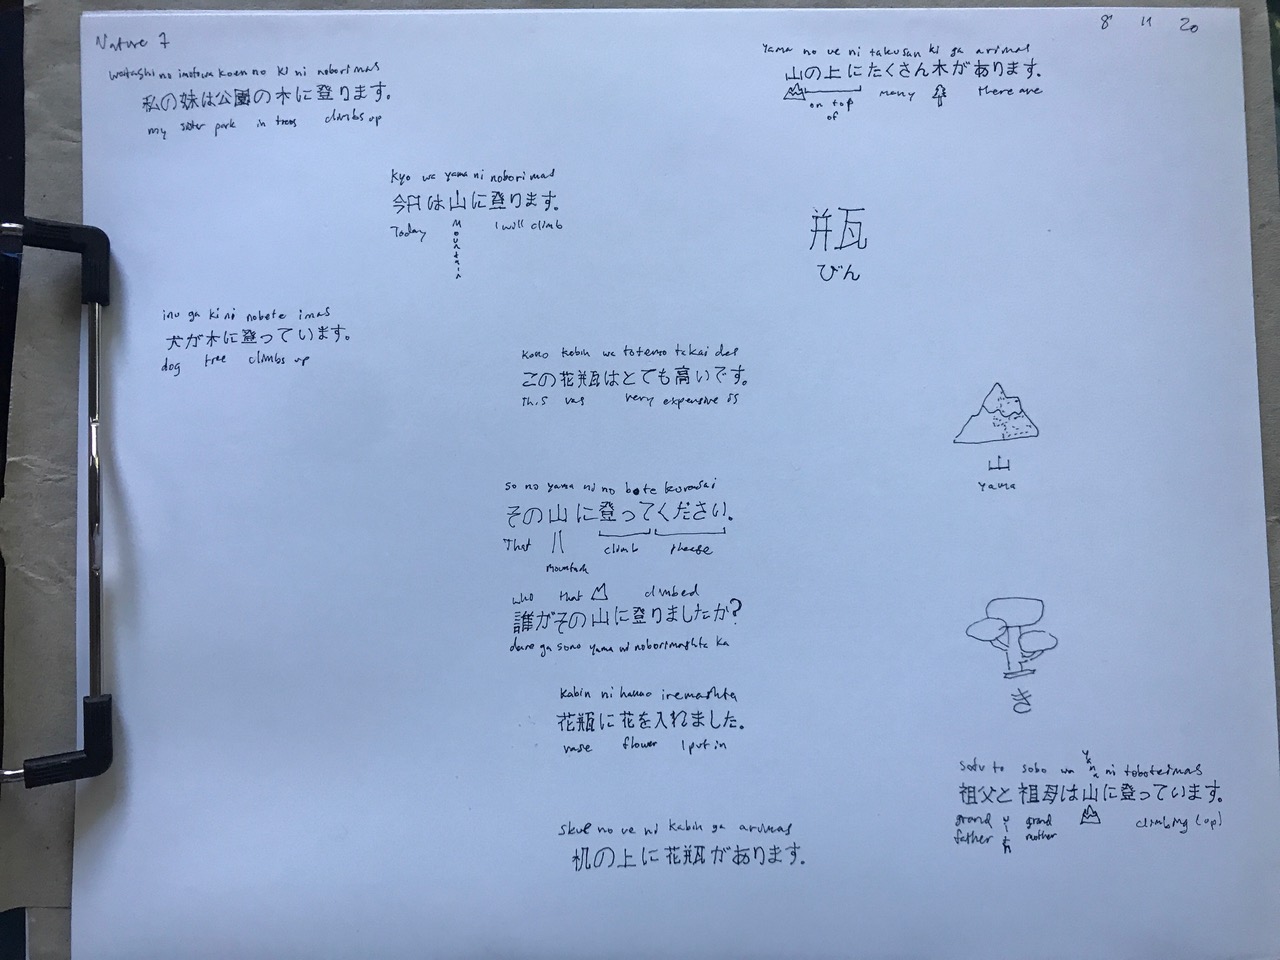 Nature 7
8 11 20
watashi no imotowa koen no ki ni noborimas
私の妹は公園の木に登ります。
my sister park in trees climbs up
yama no ue ni takusan ki ga arimas
山の上にたくさん木があります。
on top of many there are
kyo wa yama ni noborimas
今日は山に登ります。
Today Mountain I will climb
瓶
びん
inu ga ki ni nobote imas
犬が木に登っています。
dog tree climbs up
kono kabin wa totemo takai des
この花瓶はとても高いです。
this vas very expensive is
山
yama
so no yama ni no bote kudasai
その山に登ってください。
That climb please
mountain
who that climbed
誰がその山に登りましたか?
dare ga sono yama ni noborimashta ka
き
kabin ni hanao iremashta
花瓶に花を入れました。
vase flower I put in
sofu to sobo wa yama ni noboteimas
祖父と祖母は山に登っています。
grand father with grand mother climbing (up)
skue no ue ni kabin ga arimas
机の上に花瓶があります。